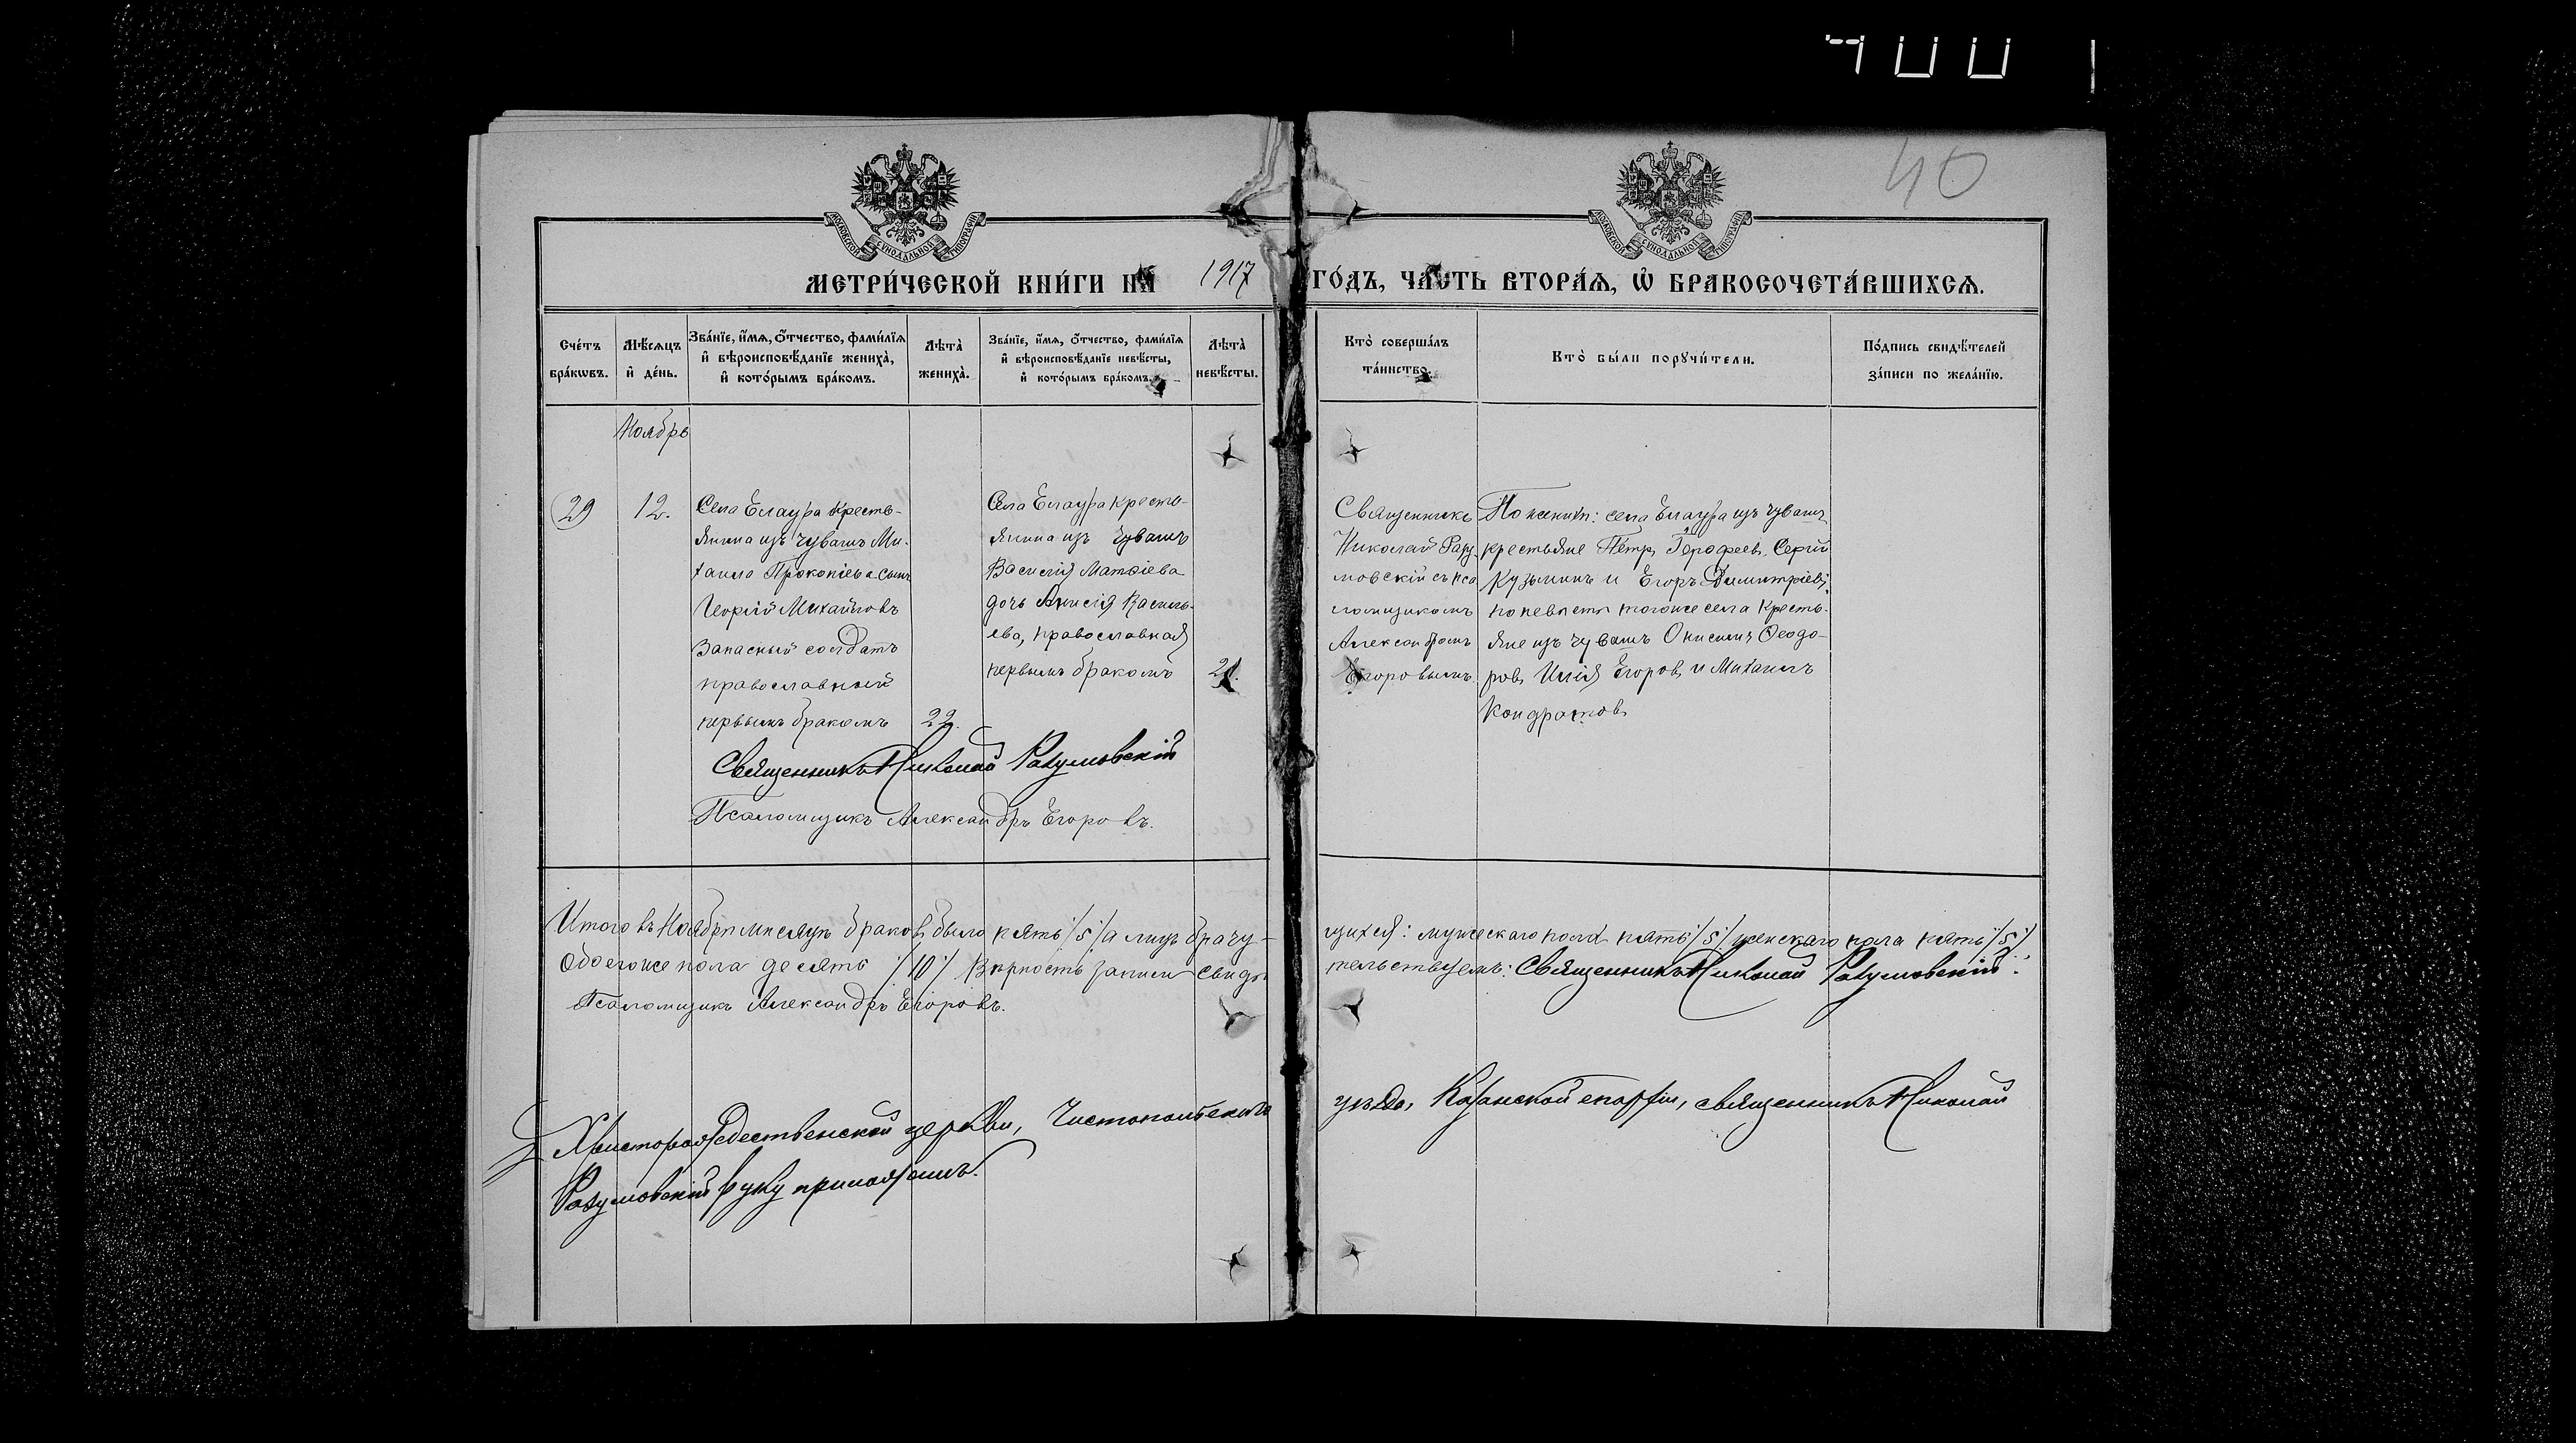 40
МОСКОВСКОЙ СУНОДАЛЬНОЙ ТИПОГРАФІИ
МОСКОВСКОЙ СУНОДАЛЬНОЙ ТИПОГРАФІИ
МЕТРИ́ЧЕСКОЙ КНИ́ГИ НА 1917 ГО́ДЪ, ЧАСТЬ ВТОРА́Ѧ, Ѡ БРАКОСОЧЕТА́ВШИХСѦ.
Сче́тъ бра́кѡвъ.
Мѣ́сѧцъ и҆ де́нь.
Зва́нїе, и҆́мѧ, ѻ҆́тчество, фами́лїѧ и҆ вѣроисповѣ́данїе жениха̀, и҆ кото́рымъ бра́комъ.
Лѣта̀ жениха̀.
Зва́нїе, и҆́мѧ, ѻ҆́тчество, фами́лїѧ и҆ вѣроисповѣ́данїе невѣ́сты, и҆ кото́рымъ бра́комъ.
Лѣта̀ невѣ́сты.
Кто̀ соверша́лъ та́инство.
Кто̀ бы́ли порꙋчи́тели.
По́дпись свидѣ́телей за́писи по жела́нїю.
Ноябрь
29
12.
Села Елаура кресть-
янина изъ чувашъ Ми-
хаила Прокопіева сынъ
Георгій Михайловъ
запасный солдатъ
православный
первымъ бракомъ
22.
Села Елаура кресть-
янина изъ чувашъ
Василія Матѳіева
дочь Анисія Василь-
ева, православная
первымъ бракомъ
Священникъ
Николай Разу-
мовскій съ пса-
ломщикомъ
Александромъ
Егоровымъ.
По женихѣ: села Елаура изъ чувашъ
крестьяне Петръ Герофеевъ, Сергій
Кузьминъ и Егоръ Димитріевъ;
по невѣстѣ тогоже села кресть-
яне изъ чувашъ Онисимъ Ѳеодо-
ровъ, Илія Егоровъ и Михаилъ
Кондратовъ
Священникъ Николай Разумовскій
Псаломщикъ Александръ Егоровъ.
Итого въ Ноябрѣ мѣсяцѣ браковъ было пять /5/ а лицъ брачу-
щихся: мужескаго пола пять /5/ женскаго пола пять /5/
обоегоже пола десять /10/ Вѣрность записи свидѣ-
тельствуемъ: Священникъ Николай Разумовскій.
Псаломщикъ Александръ Егоровъ.
Христорождественской церкви, Чистопольскаго
уѣзда, Казанской епархіи, священникъ Николай
Разумовскій руку приложилъ.